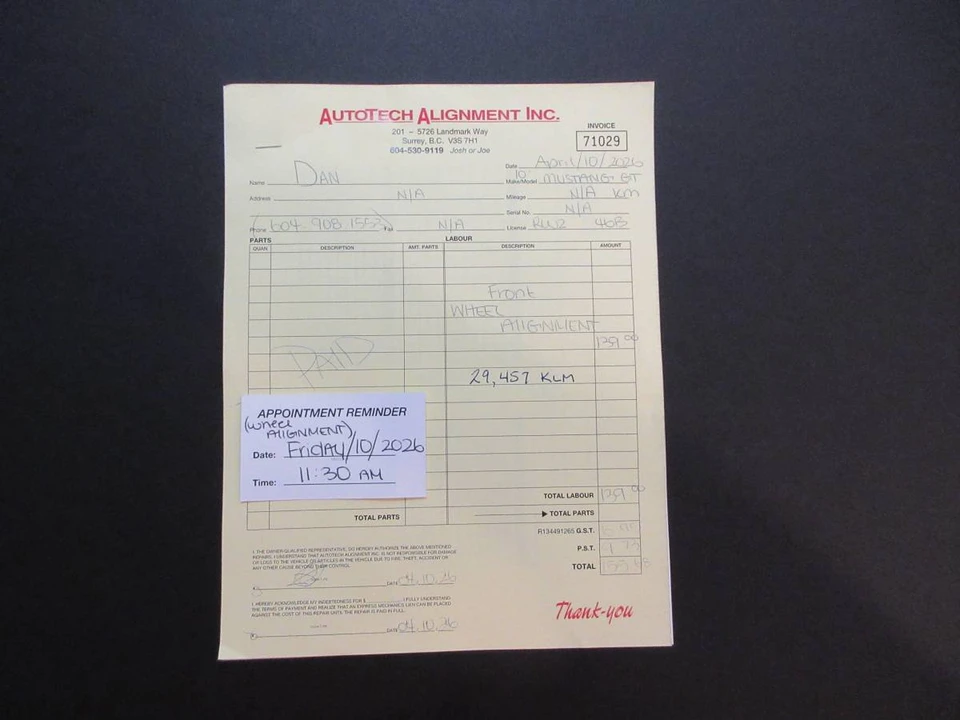 AUTOTECH ALIGNMENT INC.
201 – 5726 Landmark Way
Surrey, B.C. V3S 7H1
604-530-9119 Josh or Joe
INVOICE
71029
Date April/10/2026
Name DAN
10
Make/Model MUSTANG GT
Address N/A
Mileage N/A km
Serial No. N/A
Phone (604 908 1553) Fax N/A
License 46B
PARTS LABOUR
QUAN. DESCRIPTION AMT. PARTS DESCRIPTION AMOUNT
Front
WHEEL
AlIGNMENT
139 00
PAID
29,457 KLM
APPOINTMENT REMINDER
(wheel
AlIGNMENT)
Date: Friday/10/2026
Time: 11:30 AM
TOTAL LABOUR 139 00
TOTAL PARTS
TOTAL PARTS
R134491265 G.S.T. 6.95
P.S.T. 9.73
TOTAL 155.68
I, THE OWNER/QUALIFIED REPRESENTATIVE, DO HEREBY AUTHORIZE THE ABOVE MENTIONED
REPAIRS. I UNDERSTAND THAT AUTOTECH ALIGNMENT INC. IS NOT RESPONSIBLE FOR DAMAGE
OR LOSS TO THE VEHICLE OR ARTICLES IN THE VEHICLE DUE TO FIRE, THEFT, ACCIDENT OR
ANY OTHER CAUSE BEYOND THEIR CONTROL.
DATE 04.10.26
I, HEREBY ACKNOWLEDGE MY INDEBTEDNESS FOR $ I FULLY UNDERSTAND
THE TERMS OF PAYMENT AND REALIZE THAT AN EXPRESS MECHANICS LIEN CAN BE PLACED
AGAINST THE COST OF THIS REPAIR UNTIL THE REPAIR IS PAID IN FULL.
DATE 04.10.26
Thank-you